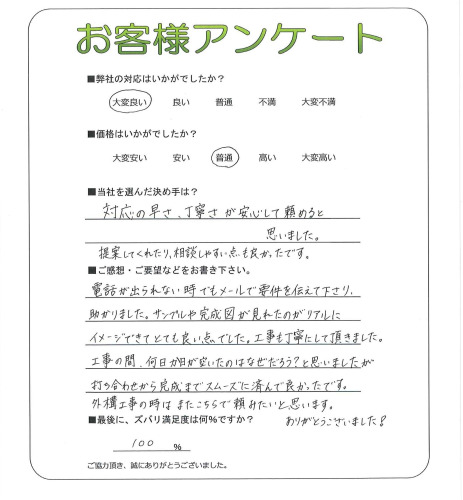 お客様アンケート
■弊社の対応はいかがでしたか？
大変良い 良い 普通 不満 大変不満
■価格はいかがでしたか？
大変安い 安い 普通 高い 大変高い
■当社を選んだ決め手は？
対応の早さ、丁寧さが安心して頼めると
思いました。
提案してくれたり、相談しやすい点も良かったです。
■ご感想・ご要望などをお書き下さい。
電話が出られない時でもメールで要件を伝えて下さり、
助かりました。サンプルや完成図が見れたのがリアルに
イメージできてとても良い点でした。工事も丁寧にして頂きました。
工事の間、何日か日が空いたのはなぜだろう？と思いましたが
打ち合わせから完成までスムーズに済んで良かったです。
外構工事の時はまたこちらで頼みたいと思います。
ありがとうございました！
■最後に、ズバリ満足度は何%ですか？
100 %
ご協力頂き、誠にありがとうございました。